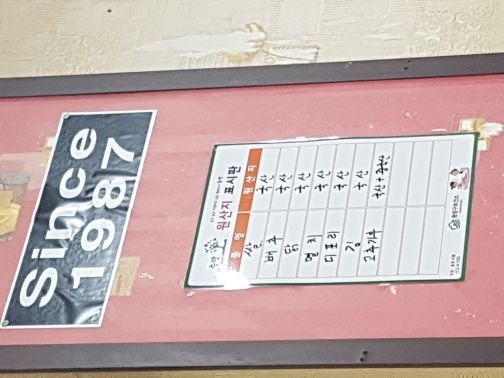 Since
1987
원산지 표시판
품 명 원 산 지
쌀 국산
배추 국산
닭 국산
멸치 국산
디포리 국산
김 국산
고추가루 국산+중국산